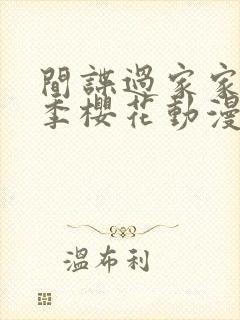 間諜過家家
季櫻花動漫
溫布利